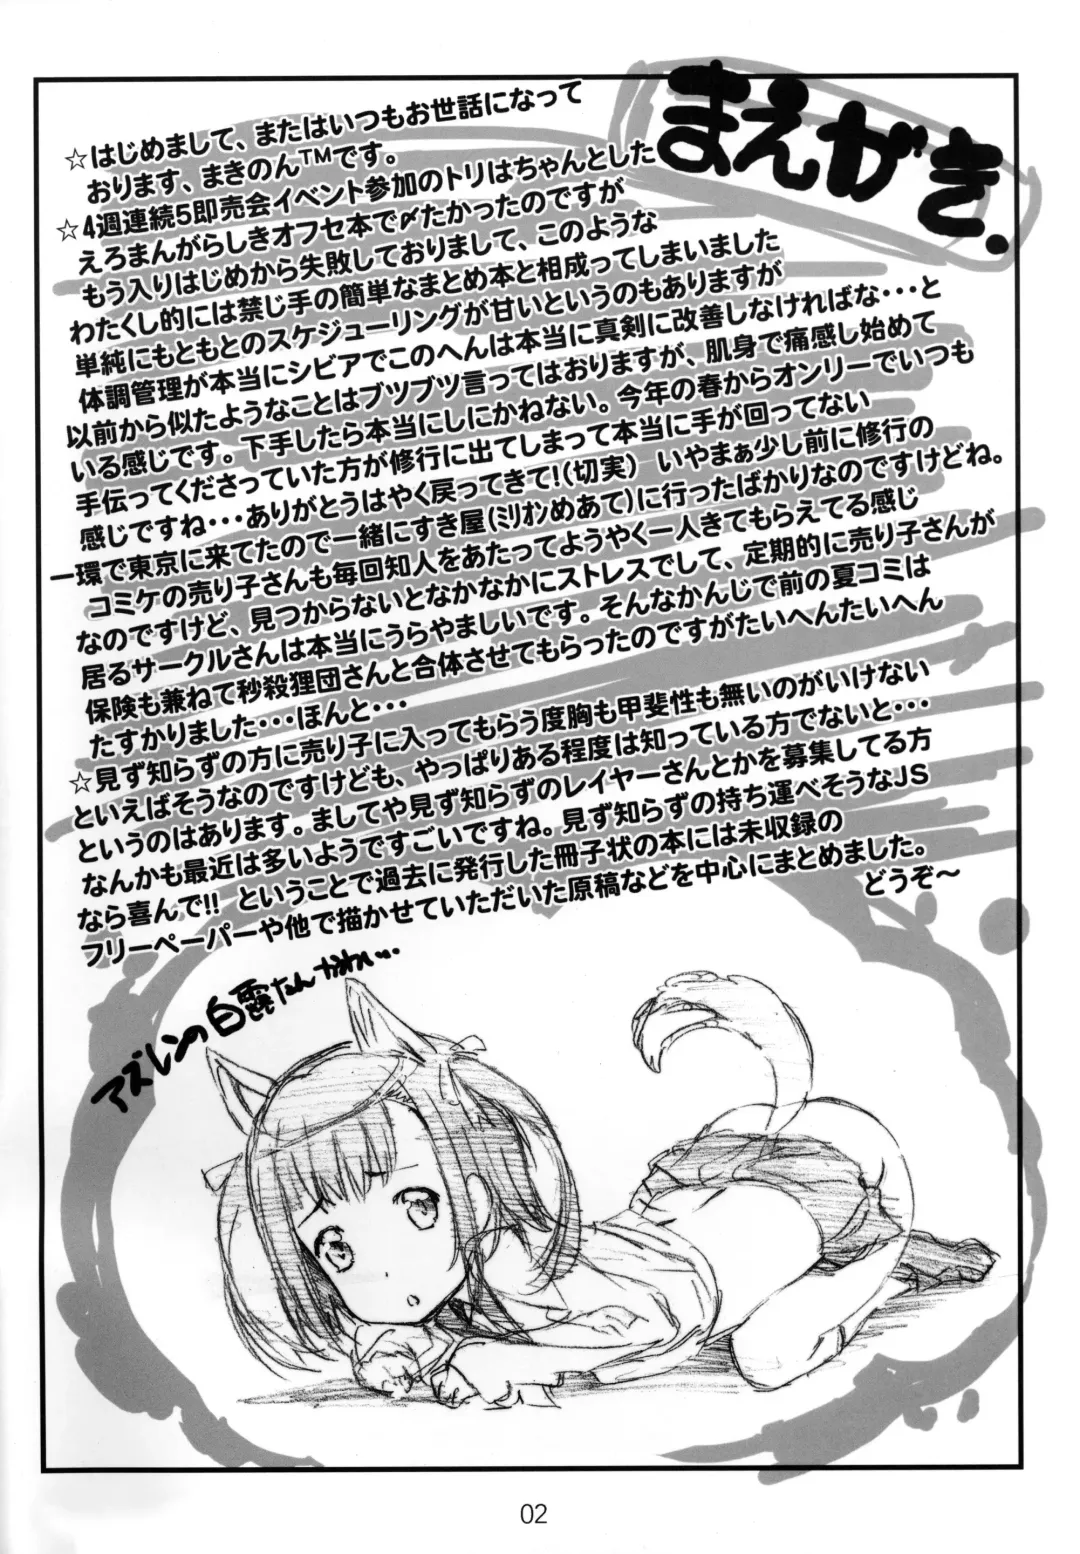 まえがき.
☆はじめまして、またはいつもお世話になって
おります、まきのん™です。
☆4週連続5即売会イベント参加のトリはちゃんとした
えろまんがらしきオフセ本で〆たかったのですが
もう入りはじめから失敗しておりまして、このような
わたくし的には禁じ手の簡単なまとめ本と相成ってしまいました
単純にもともとのスケジューリングが甘いというのもありますが
体調管理が本当にシビアでこのへんは本当に真剣に改善しなければな・・・と
以前から似たようなことはブツブツ言ってはおりますが、肌身で痛感し始めて
いる感じです。下手したら本当にしにかねない。今年の春からオンリーでいつも
手伝ってくださっていた方が修行に出てしまって本当に手が回ってない
感じですね・・・ありがとうはやく戻ってきて!(切実) いやまぁ少し前に修行の
一環で東京に来てたので一緒にすき屋(ミリオンめあて)に行ったばかりなのですけどね。
コミケの売り子さんも毎回知人をあたってようやく一人きてもらえてる感じ
なのですけど、見つからないとなかなかにストレスでして、定期的に売り子さんが
居るサークルさんは本当にうらやましいです。そんなかんじで前の夏コミは
保険も兼ねて秒殺狸団さんと合体させてもらったのですがたいへんたいへん
たすかりました・・・ほんと・・・
☆見ず知らずの方に売り子に入ってもらう度胸も甲斐性も無いのがいけない
といえばそうなのですけども、やっぱりある程度は知っている方でないと・・・
というのはあります。ましてや見ず知らずのレイヤーさんとかを募集してる方
なんかも最近は多いようですごいですね。見ず知らずの持ち運べそうなJS
なら喜んで!! ということで過去に発行した冊子状の本には未収録の
フリーペーパーや他で描かせていただいた原稿などを中心にまとめました。
どうぞ〜
アズレンの白露たんかわい…
02